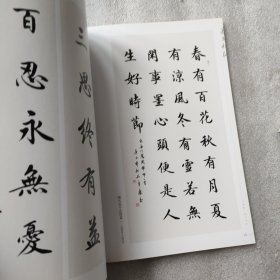 春有百花秋有月夏
有涼風冬有雪若無
閒事罣心頭便是人
生好時節
三思終有益
百忍永無憂